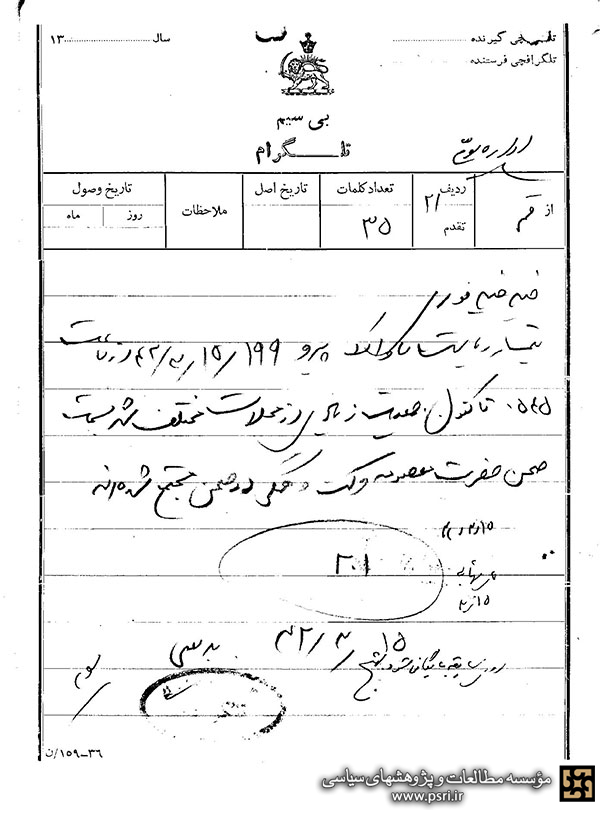 تلگرافچی گیرنده
سال ۱۳
تلگرافچی فرستنده
بی سیم
تلـــگرام
اداره سوم
از قم
ردیف ۲۱
تقدم
تعداد کلمات
۳۵
تاریخ اصل
ملاحظات
تاریخ وصول
روز
ماه
خیلی خیلی فوری
تیمسار ریاست ساواک پیرو ۱۹۹/ ۱۵/۳/۴۲ از ساعت
۰۵۴۵ تاکنون جمعیت زیادی از محلات مختلف شهر بسمت
صحن حضرت معصومه حرکت و همگی در صحن مجتمع شده‌اند
۳۰۱
۱۵/۳/۴۲
بدیعی
۱۵۹-۳۶/ن
مؤسسه مطالعات و پژوهشهای سیاسی
www.psri.ir